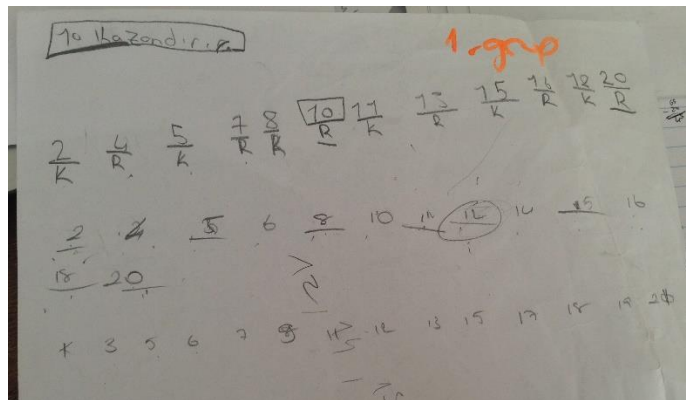 10 kazandırır.
1. grup
2/K 4/R 5/K 7/R 8/R 10/R 11/K 13/R 15/K 16/R 18/K 20/R
2 4 5 6 8 10 11 12 14 15 16
18 20
3 5 6 7 12 13 15 17 18 19 20